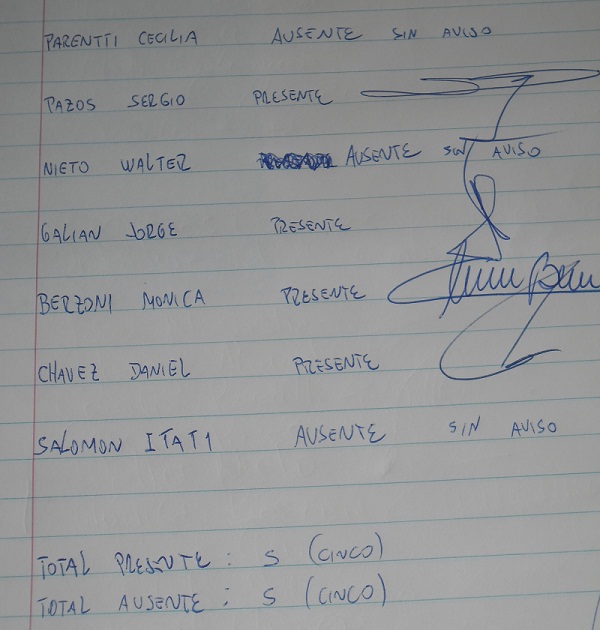 PARENTTI CECILIA AUSENTE SIN AVISO
PAZOS SERGIO PRESENTE
NIETO WALTER AUSENTE SIN AVISO
GALIAN JORGE PRESENTE
BERZONI MONICA PRESENTE
CHAVEZ DANIEL PRESENTE
SALOMON ITATI AUSENTE SIN AVISO
TOTAL PRESENTE : 5 (CINCO)
TOTAL AUSENTE : 5 (CINCO)